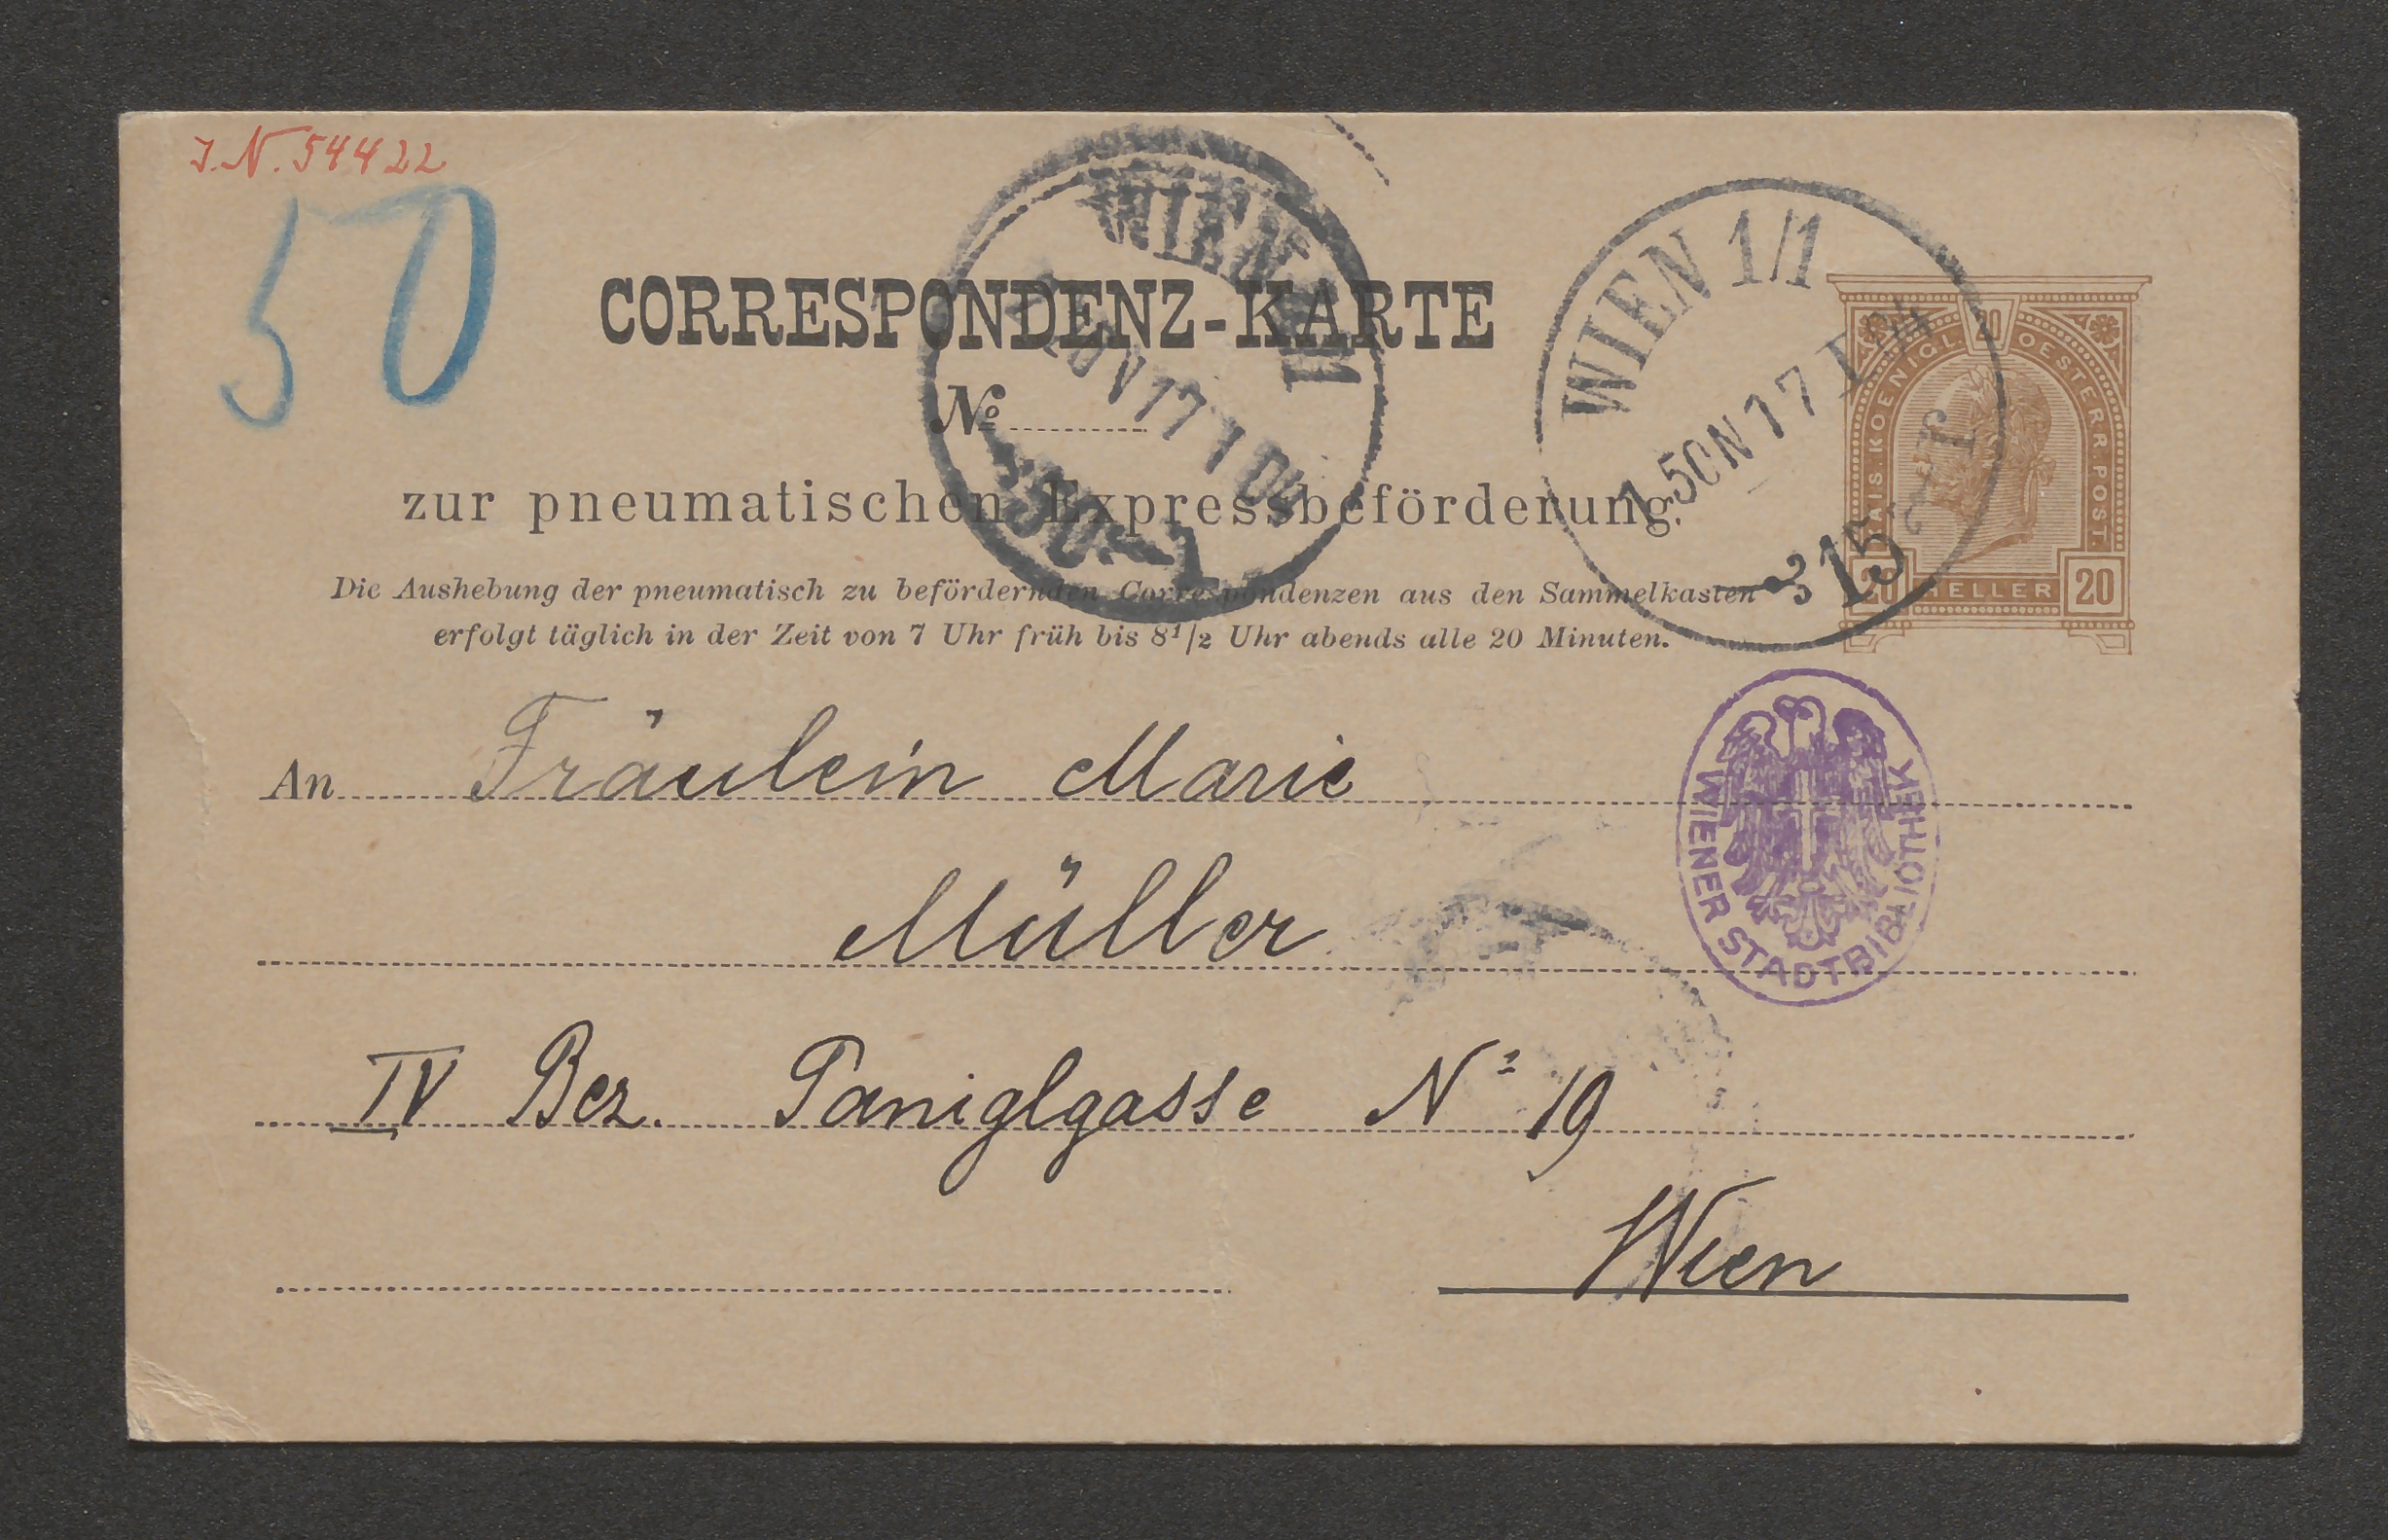 J.N. 54422
50
CORRESPONDENZ-KARTE
No
zur pneumatischen Expressbeförderung.
Die Aushebung der pneumatisch zu befördernden Correspondenzen aus den Sammelkasten
erfolgt täglich in der Zeit von 7 Uhr früh bis 8 1/2 Uhr abends alle 20 Minuten.
WIEN
WIEN 1/1
KAIS. KOENIGL. OESTERR. POST.
20
20 HELLER 20
An Fräulein Marie
Müller
IV Bez. Paniglgasse No 19
Wien
WIENER STADTBIBLIOTHEK